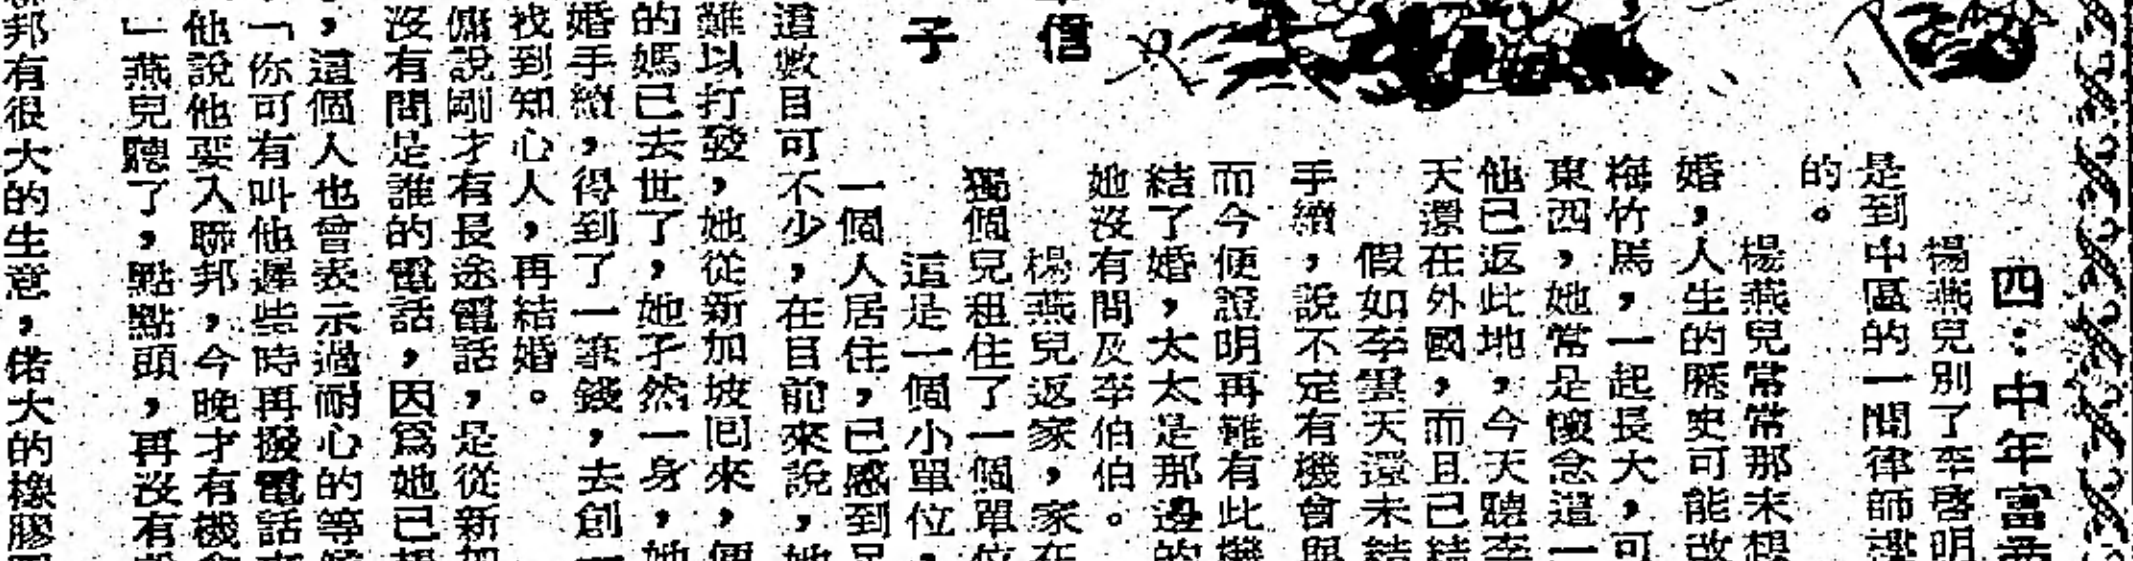 四：中年富
楊燕兒別了李啓明
是到中區的一間律師
的。
楊燕兒常常那末想
婚，人生的歷史可能改
梅竹馬，一起長大，可
東西，她常是懷念這一
他已返此地，今天聽李
天還在外國，而且已結
假如李雲天還未結
手續，說不定有機會與
而今便證明再難有此機
結了婚，太太是那邊的
她沒有問及李伯伯。
信
楊燕兒返家，家在
獨個兒租住了一個單位
子
這是一個小單位，
一個人居住，已感到足
這數目可不少，在目前來說，她
難以打發，她從新加坡回來，便
的媽已去世了，她孑然一身，她
婚手續，得到了一筆錢，去創一
找到知心人，再結婚。
傭說剛才有長途電話，是從新加
沒有問是誰的電話，因為她已想
，這個人也曾表示過耐心的等候
「你可有叫他遲些時再撥電話來
他說他要入聯邦，今晚才有機會
」燕兒聽了，點點頭，再沒有說
聯邦有很大的生意，偌大的橡膠園